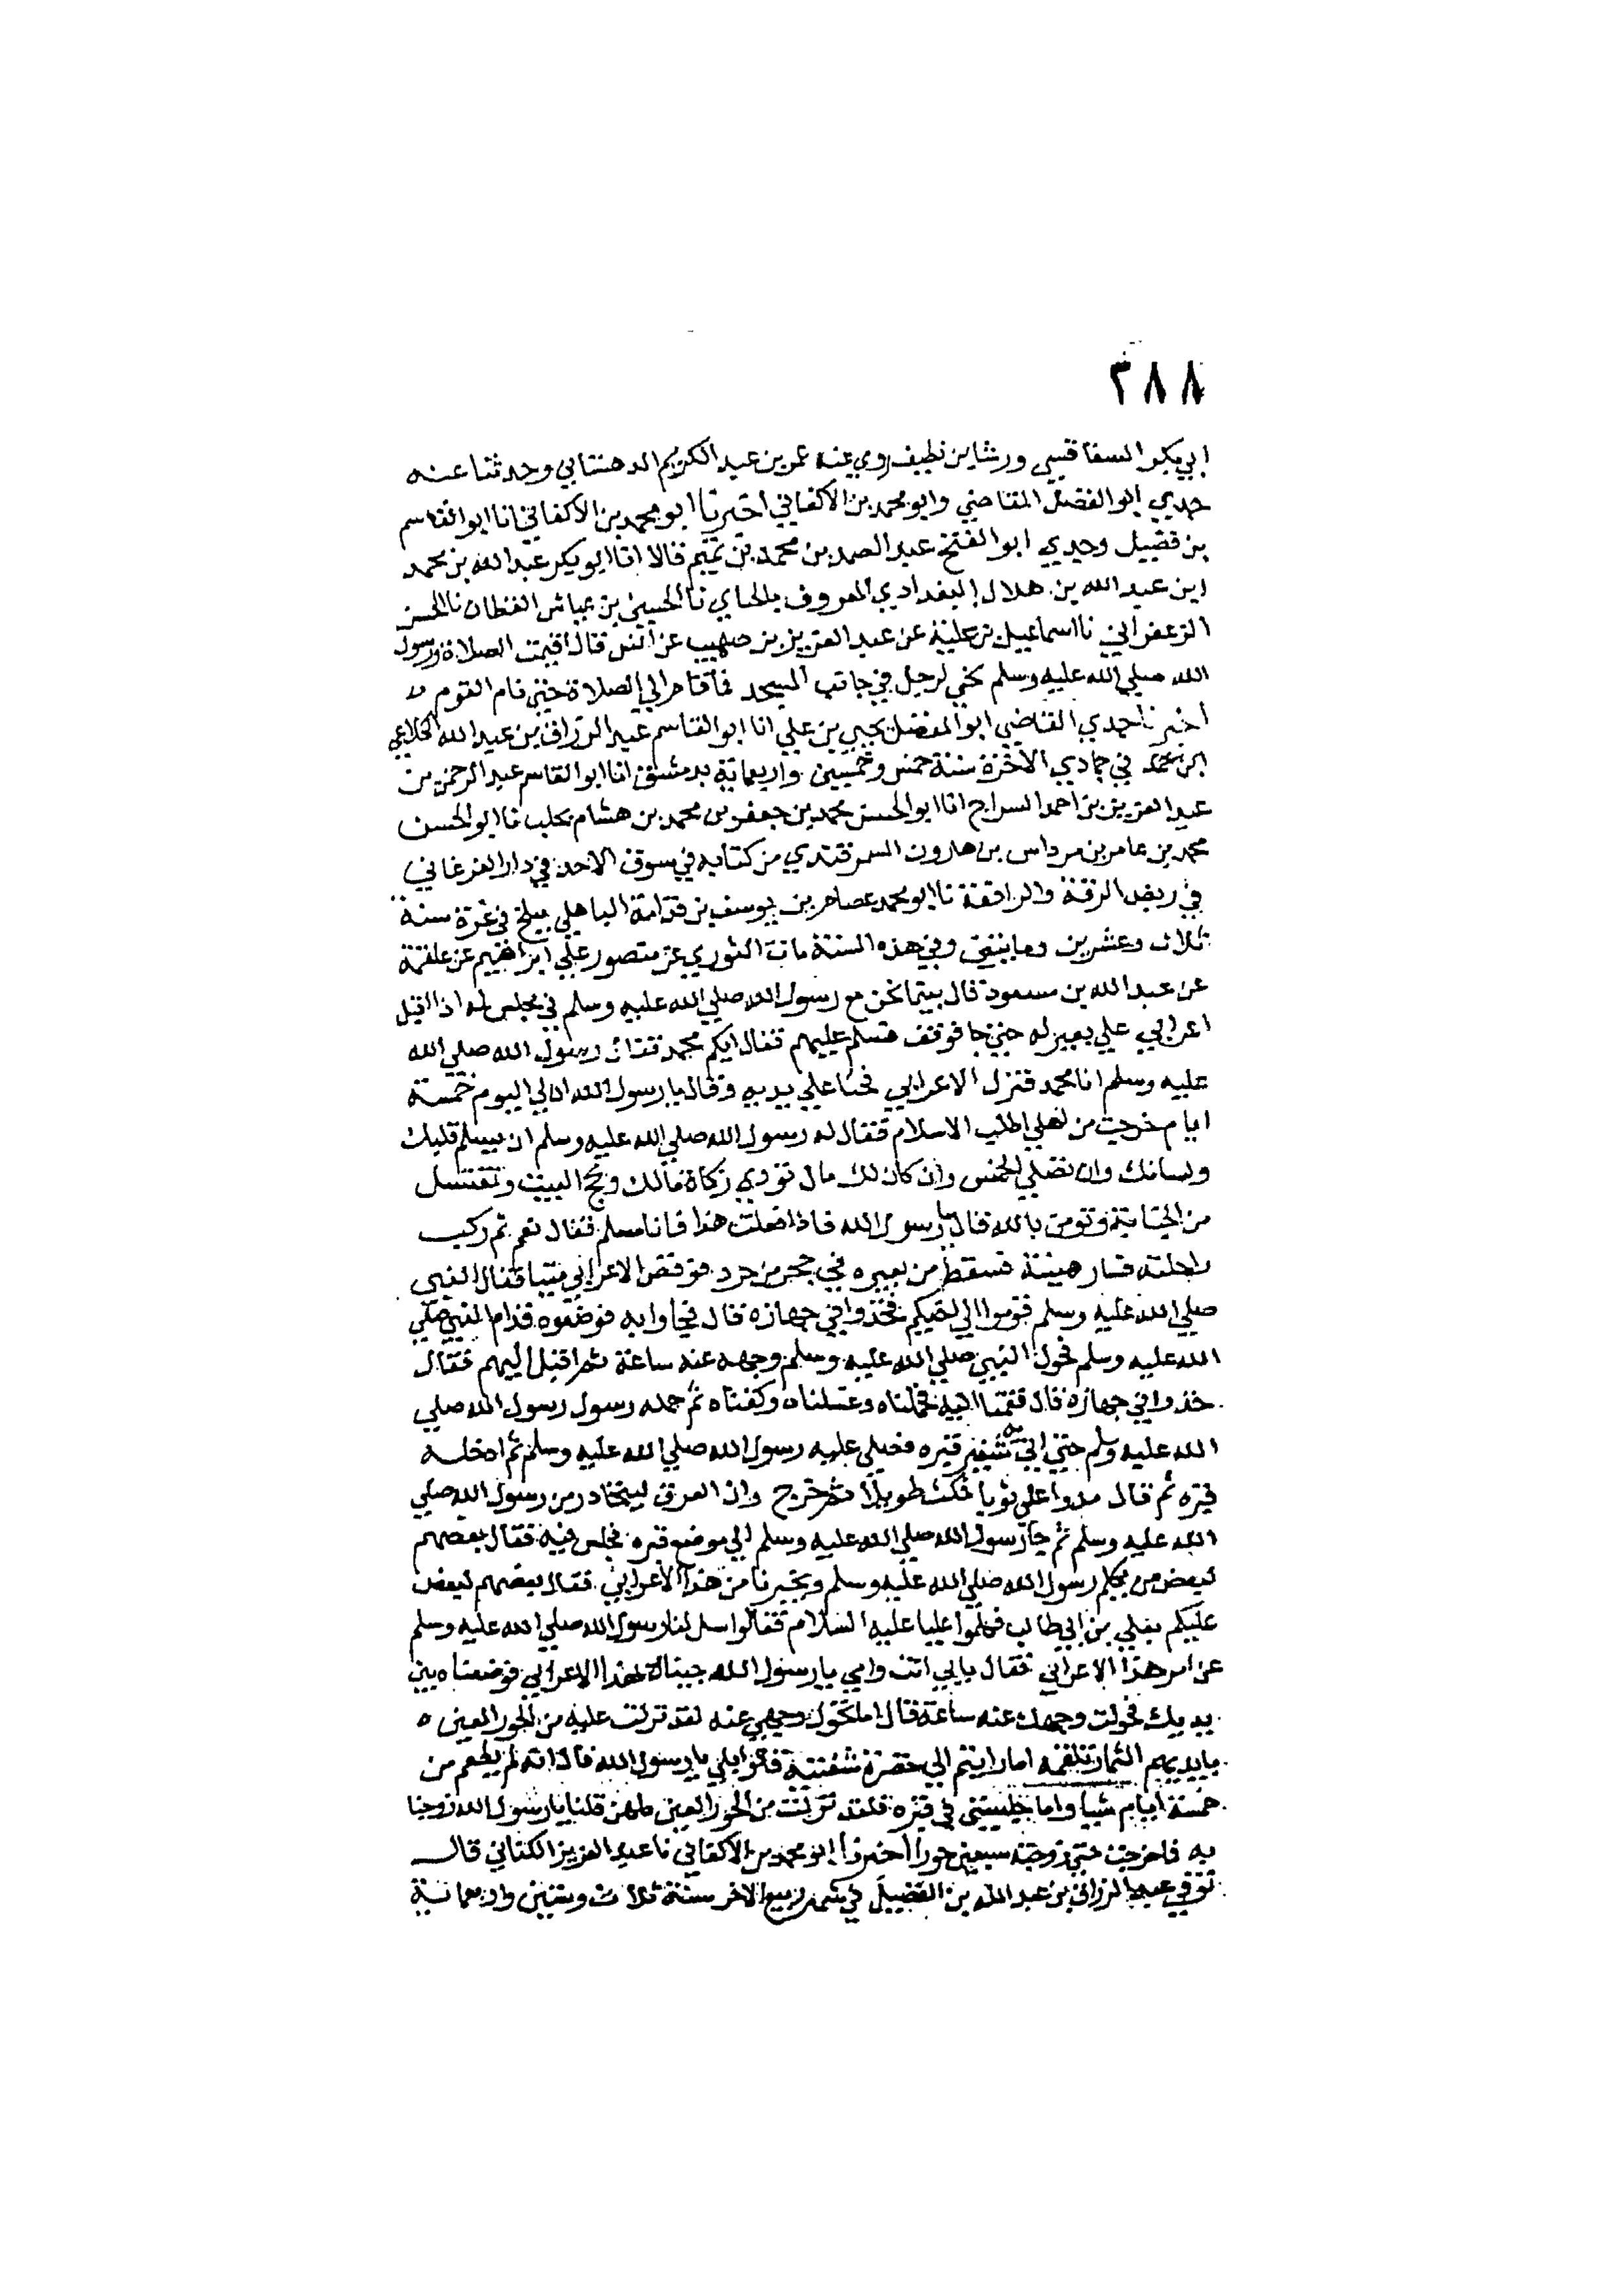 ٣٨٨
ابي بكر السفاقسي ورشا بن نظيف روي عنه عمر بن عبد الكريم الدهستاني وحدثنا عنه
جدي ابو الفضل القاضي وابو محمد بن الاكفاني اخبرنا ابو محمد بن الاكفاني انا ابو القاسم
بن فضيل وجدي ابو الفتح عبد الصمد بن محمد بن تميم قالا انا ابو بكر عبد الله بن محمد
ابن عبد الله بن هلال البغدادي المعروف بالحناي نا الحسين بن عياش القطان نا الحسن
الزعفراني نا اسماعيل بن علية عن عبد العزيز بن صهيب عن انس قال اقيمت الصلاة ورسول
الله صلي الله عليه وسلم نجي لرجل في جانب المسجد فما قام الي الصلاة حتى نام القوم
اخبرنا جدي القاضي ابو المفضل يحيي بن علي انا ابو القاسم عبد الرزاق بن عبد الله الكلاعي
في جمادي الاخرة سنة خمس وخمسين واربعماية بدمشق انا ابو القاسم عبد الرحمن بن
عبد العزيز بن احمد السراج انا ابو الحسن محمد بن جعفر بن محمد بن هشام بحلب نا ابو الحسن
محمد بن عامر بن مرداس بن هارون السمرقندي من كتابه في سوق الاحد في دار الفرغاني
في ربض الرقة والرافقة نا ابو محمد عصام بن يوسف بن قدامة الباهلي ببلخ في غرة سنة
ثلاث وعشرين ومايتين وفي هذه السنة مات الثوري عن منصور علي ابراهيم عن علقمة
عن عبد الله بن مسعود قال بينما نحن مع رسول الله صلي الله عليه وسلم في مجلس له اذ اقبل
اعرابي علي بعير له حتي جا فوقف فسلم عليهم فقال ايكم محمد فقال رسول الله صلي الله
عليه وسلم انا محمد فنزل الاعرابي فجثا علي يديه وقال يا رسول الله ان لي اليوم خمسة
ايام خرجت من اهلي اطلب الاسلام فقال له رسول الله صلي الله عليه وسلم ان يسلم قلبك
ولسانك وان تصلي الخمس وان كان لك مال تودي زكاة مالك وتحج البيت وتغتسل
من الجنابة وتومن بالله قال يا رسول الله فاذا فعلت هذا فانا مسلم فقال نعم ثم ركب
راحلته فسار هنيئة فسقط من بعيره في جحر من جرد فوقص الاعرابي ميتا فقال النبي
صلي الله عليه وسلم قوموا الي اخيكم فخذوا في جهازه قال فجاوا به فوضعوه قدام النبي صلي
الله عليه وسلم فحول النبي صلي الله عليه وسلم وجهه عنه ساعة ثم اقبل اليهم فقال
خذوا في جهازه قال فقمنا اليه فحملناه وغسلناه وكفناه ثم حمله رسول رسول الله صلي
الله عليه وسلم حتي اتي به شفير قبره فصلي عليه رسول الله صلي الله عليه وسلم ثم ادخله
قبره ثم قال مدوا علي ثوبا فمكث طويلا ثم خرج وان العرق ليتحادر من رسول الله صلي
الله عليه وسلم ثم جا رسول الله صلي الله عليه وسلم الي موضع قبره فجلس فيه فقال بعضهم
لبعض من يكلم رسول الله صلي الله عليه وسلم ويخبرنا من هذا الاعرابي فقال بعضهم لبعض
عليكم بعلي بن ابي طالب فكلموا عليا عليه السلام فقالوا سل لنا رسول الله صلي الله عليه وسلم
عن امر هذا الاعرابي فقال بابي انت وامي يا رسول الله جيناك بهذا الاعرابي فوضعناه بين
يديك فحولت وجهك عنه ساعة قال اما تحول وجهي عنه لقد نزلت عليه من الحور العين
بايديهم الثمار تلقمه اما رايتم الي خضرة شفتيه قالوا بلي يا رسول الله قال انه لم يطعم من
خمسة ايام شيا واما جلستي في قبره فلقد نزلت من الحور العين كلهن قلنا يا رسول الله زوجنا
به فما خرجت حتي زوجته سبعين حورا اخبرنا ابو محمد بن الاكفاني نا عبد العزيز الكتاني قال
توفي عبد الرزاق بن عبد الله بن الفضيل في شهر ربيع الاخر سنة ثلاث وستين واربعماية